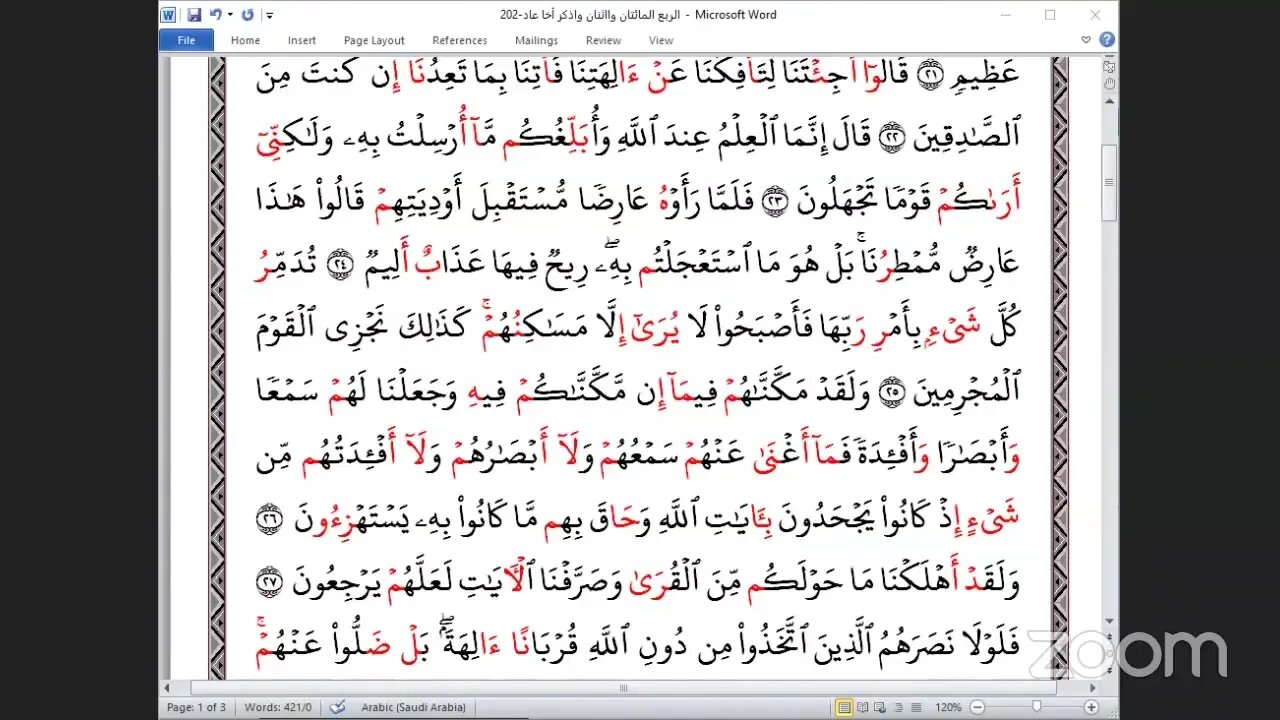 الربع المائتان واثنان واذكر أخا عاد-202 - Microsoft Word
File Home Insert Page Layout References Mailings Review View
عَظِيمٖ ٢١ قَالُوٓاْ أَجِئۡتَنَا لِتَأۡفِكَنَا عَنۡ ءَالِهَتِنَا فَأۡتِنَا بِمَا تَعِدُنَآ إِن كُنتَ مِنَ
ٱلصَّٰدِقِينَ ٢٢ قَالَ إِنَّمَا ٱلۡعِلۡمُ عِندَ ٱللَّهِ وَأُبَلِّغُكُم مَّآ أُرۡسِلۡتُ بِهِۦ وَلَٰكِنِّيٓ
أَرَىٰكُمۡ قَوۡمٗا تَجۡهَلُونَ ٢٣ فَلَمَّا رَأَوۡهُ عَارِضٗا مُّسۡتَقۡبِلَ أَوۡدِيَتِهِمۡ قَالُواْ هَٰذَا
عَارِضٞ مُّمۡطِرُنَاۚ بَلۡ هُوَ مَا ٱسۡتَعۡجَلۡتُم بِهِۦۖ رِيحٞ فِيهَا عَذَابٌ أَلِيمٞ ٢٤ تُدَمِّرُ
كُلَّ شَيۡءِۭ بِأَمۡرِ رَبِّهَا فَأَصۡبَحُواْ لَا يُرَىٰٓ إِلَّا مَسَٰكِنُهُمۡۚ كَذَٰلِكَ نَجۡزِي ٱلۡقَوۡمَ
ٱلۡمُجۡرِمِينَ ٢٥ وَلَقَدۡ مَكَّنَّٰهُمۡ فِيمَآ إِن مَّكَّنَّٰكُمۡ فِيهِ وَجَعَلۡنَا لَهُمۡ سَمۡعٗا
وَأَبۡصَٰرٗا وَأَفۡـِٔدَةٗ فَمَآ أَغۡنَىٰ عَنۡهُمۡ سَمۡعُهُمۡ وَلَآ أَبۡصَٰرُهُمۡ وَلَآ أَفۡـِٔدَتُهُم مِّن
شَيۡءٍ إِذۡ كَانُواْ يَجۡحَدُونَ بِـَٔايَٰتِ ٱللَّهِ وَحَاقَ بِهِم مَّا كَانُواْ بِهِۦ يَسۡتَهۡزِءُونَ ٢٦
وَلَقَدۡ أَهۡلَكۡنَا مَا حَوۡلَكُم مِّنَ ٱلۡقُرَىٰ وَصَرَّفۡنَا ٱلۡأٓيَٰتِ لَعَلَّهُمۡ يَرۡجِعُونَ ٢٧
فَلَوۡلَا نَصَرَهُمُ ٱلَّذِينَ ٱتَّخَذُواْ مِن دُونِ ٱللَّهِ قُرۡبَانًا ءَالِهَةَۢۖ بَلۡ ضَلُّواْ عَنۡهُمۡۚ
zoom
Page: 1 of 3 Words: 421/0 Arabic (Saudi Arabia) 120%